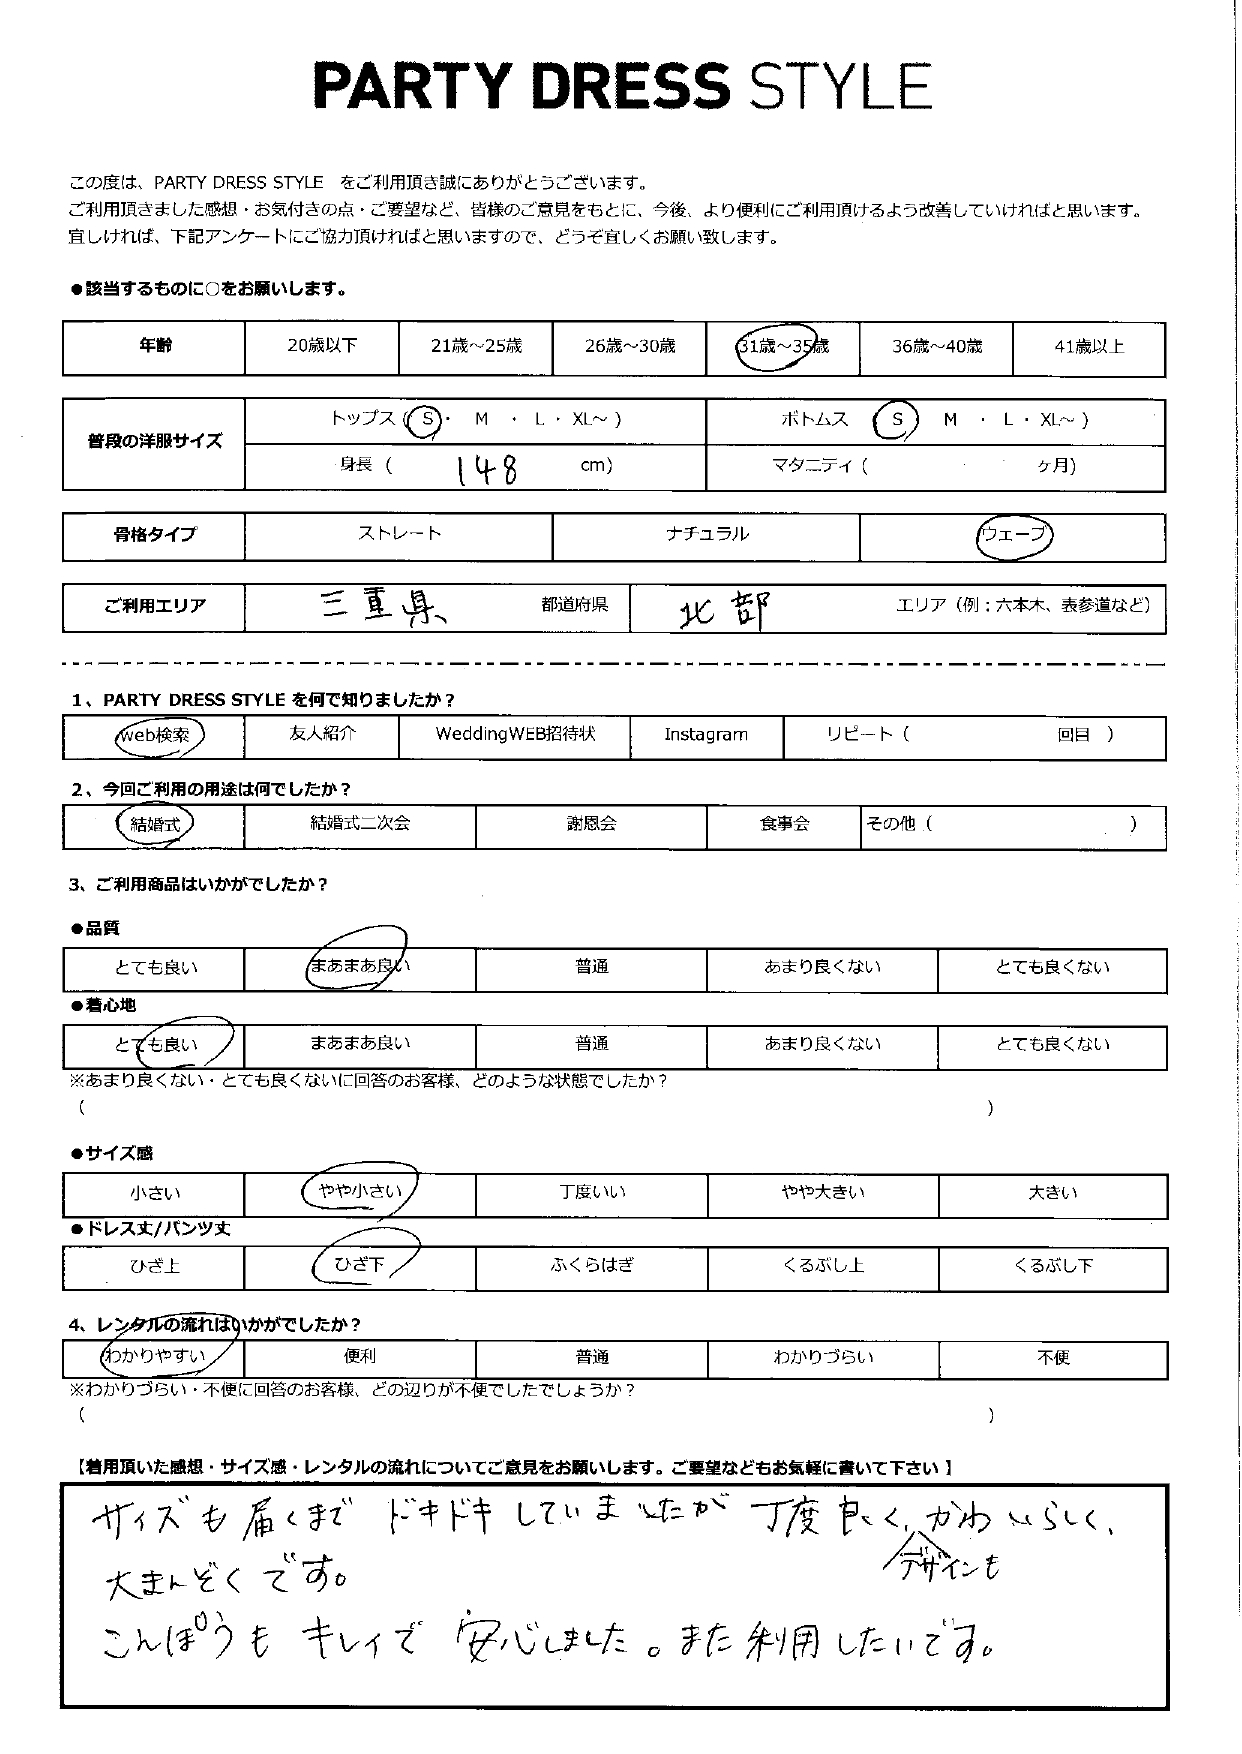 PARTY DRESS STYLE
この度は、PARTY DRESS STYLE をご利用頂き誠にありがとうございます。
ご利用頂きました感想・お気付きの点・ご要望など、皆様のご意見をもとに、今後、より便利にご利用頂けるよう改善していければと思います。
宜しければ、下記アンケートにご協力頂ければと思いますので、どうぞ宜しくお願い致します。
●該当するものに○をお願いします。
年齢 20歳以下 21歳～25歳 26歳～30歳 31歳～35歳 36歳～40歳 41歳以上
普段の洋服サイズ トップス (S・ M ・ L ・ XL～ ) ボトムス (S M ・ L ・ XL～ )
身長 ( 148 cm) マタニティ ( ヶ月)
骨格タイプ ストレート ナチュラル ウェーブ
ご利用エリア 三重県 都道府県 北部 エリア（例：六本木、表参道など）
1、PARTY DRESS STYLE を何で知りましたか？
web検索 友人紹介 WeddingWEB招待状 Instagram リピート ( 回目 )
2、今回ご利用の用途は何でしたか？
結婚式 結婚式二次会 謝恩会 食事会 その他 ( )
3、ご利用商品はいかがでしたか？
●品質
とても良い まあまあ良い 普通 あまり良くない とても良くない
●着心地
とても良い まあまあ良い 普通 あまり良くない とても良くない
※あまり良くない・とても良くないに回答のお客様、どのような状態でしたか？
( )
●サイズ感
小さい やや小さい 丁度いい やや大きい 大きい
●ドレス丈/パンツ丈
ひざ上 ひざ下 ふくらはぎ くるぶし上 くるぶし下
4、レンタルの流れはいかがでしたか？
わかりやすい 便利 普通 わかりづらい 不便
※わかりづらい・不便に回答のお客様、どの辺りが不便でしたでしょうか？
( )
【着用頂いた感想・サイズ感・レンタルの流れについてご意見をお願いします。ご要望などもお気軽に書いて下さい】
サイズも届くまでドキドキしていましたが丁度良く、かわいらしく、
デザインも
大まんぞくです。
こんぽうもキレイで安心しました。また利用したいです。